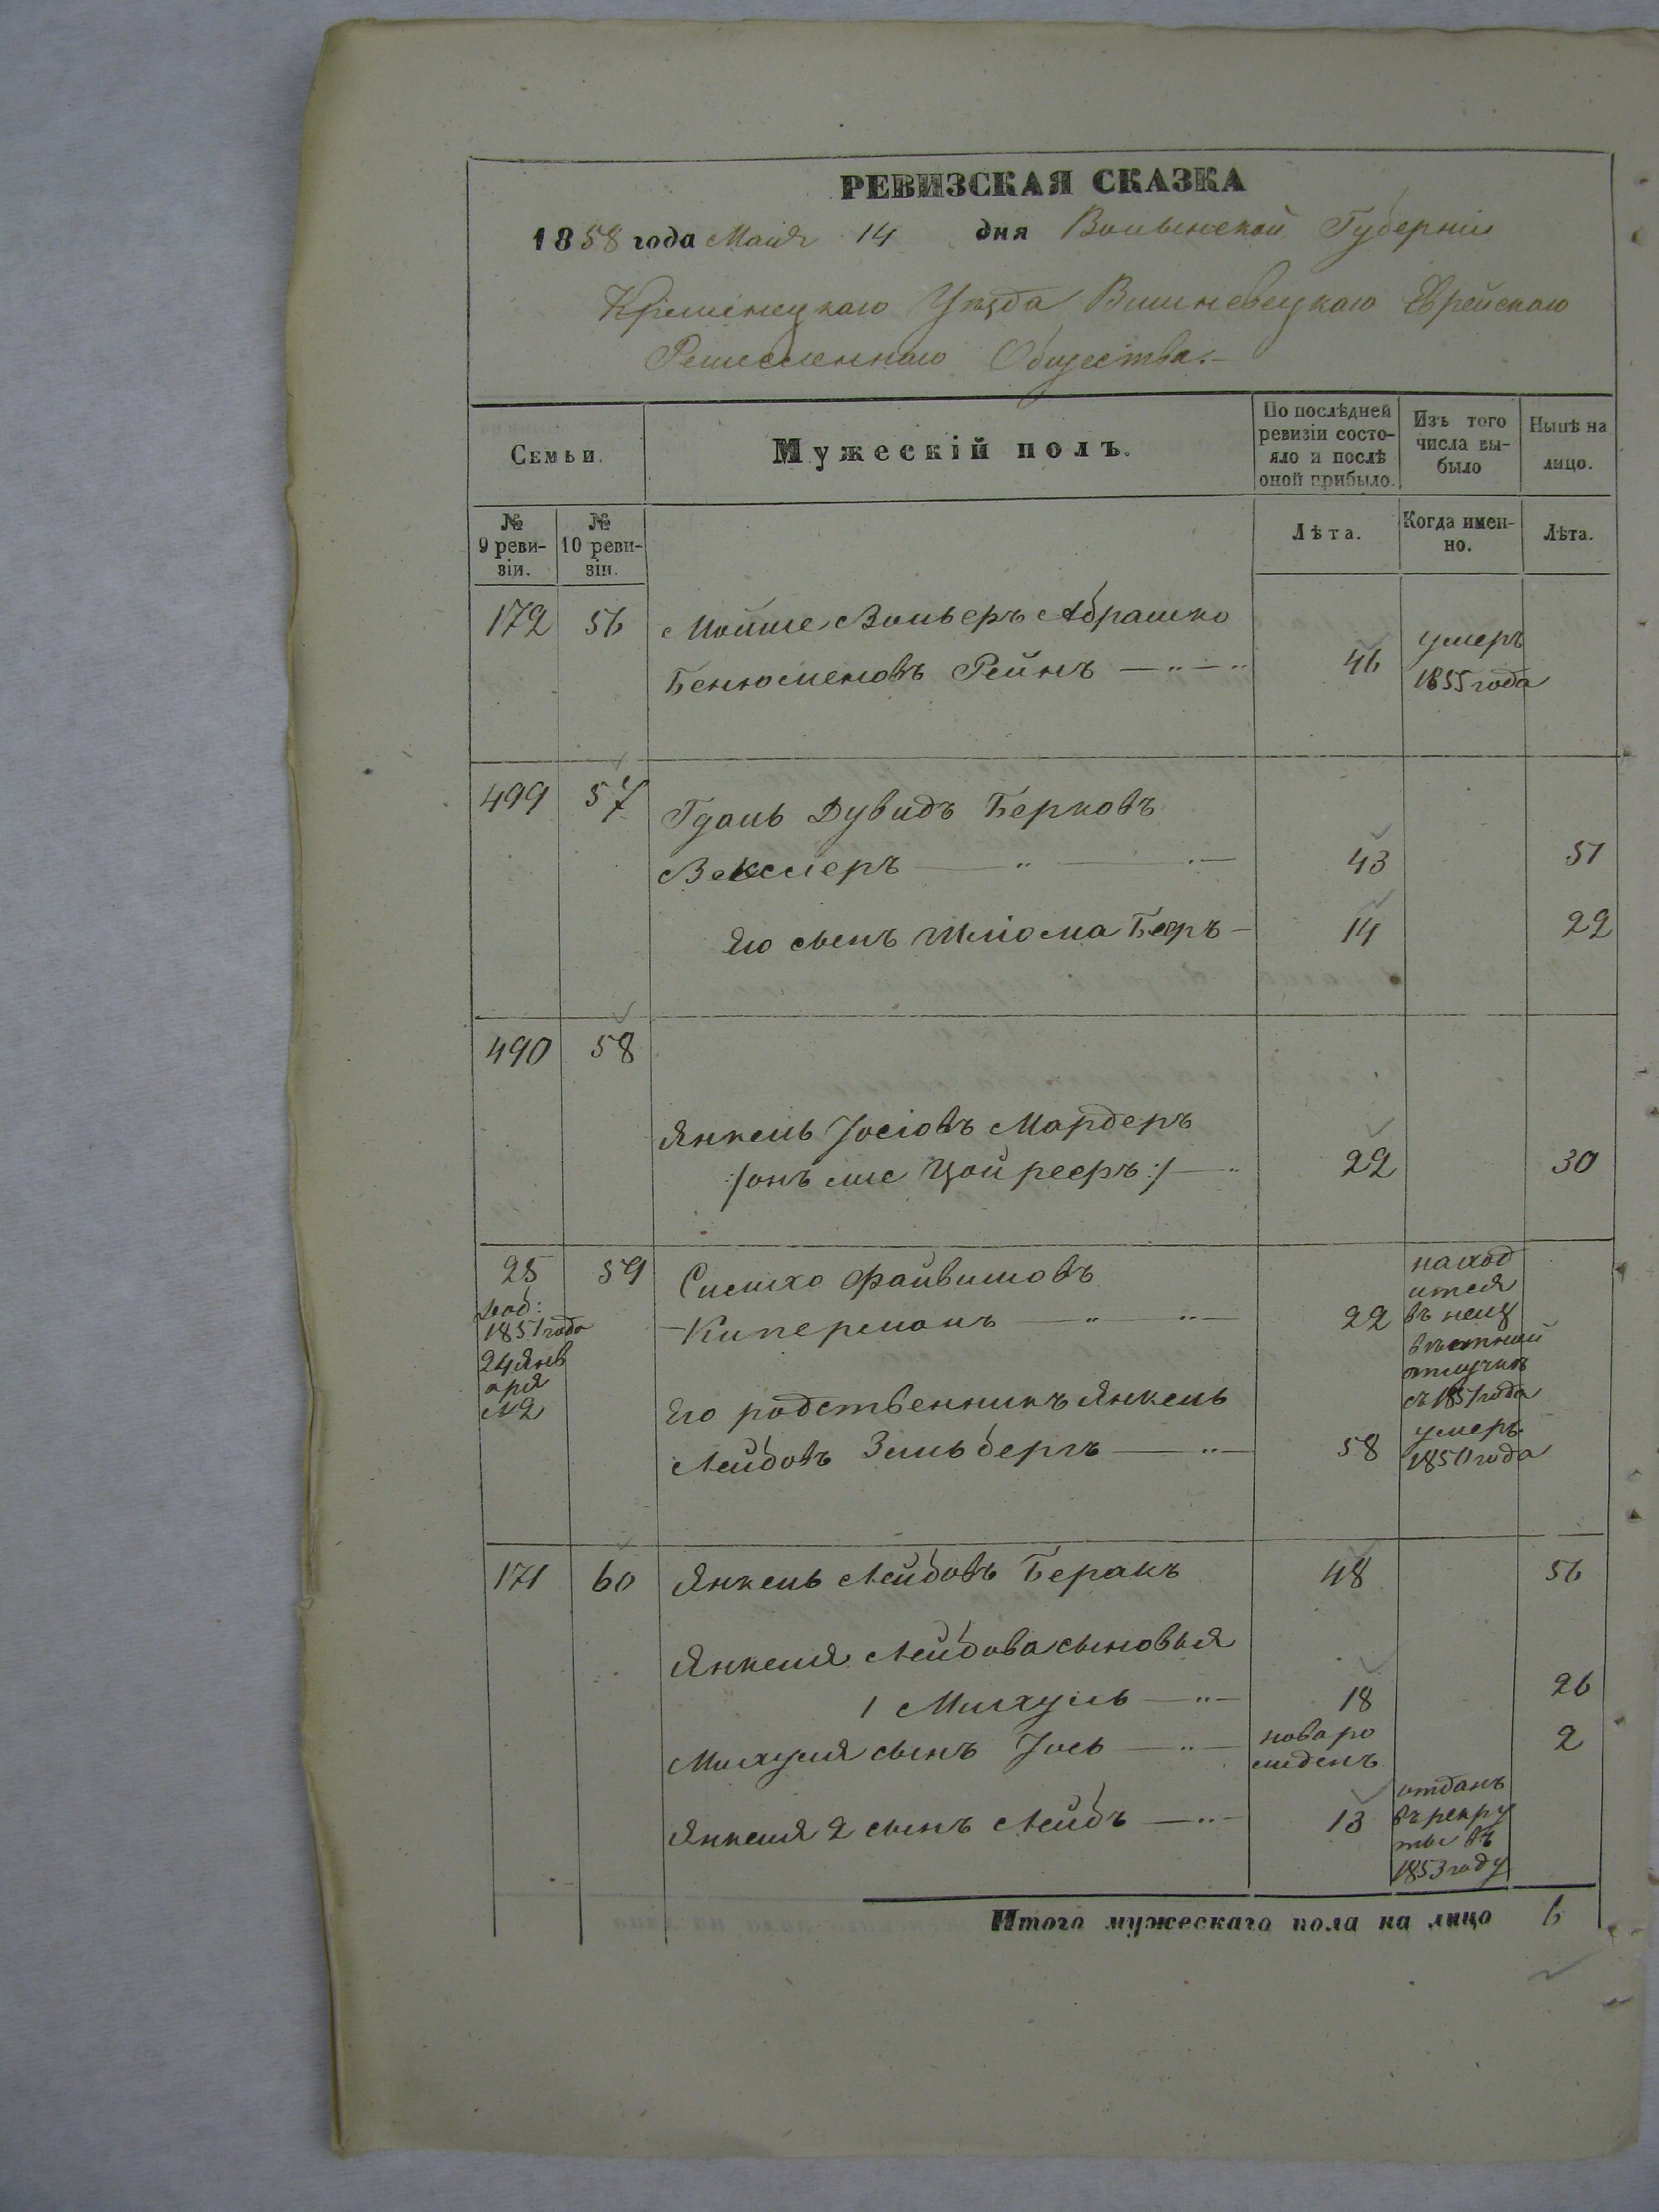 РЕВИЗСКАЯ СКАЗКА
1858 года Маія 14 дня Волынской Губерніи
Кременецкаго Уѣзда Вишневецкаго Еврейскаго
Ремесленнаго Общества.-
Семьи.
Мужескій полъ.
По послѣдней ревизіи состояло и послѣ оной прибыло.
Изъ того числа выбыло
Нынѣ на лицо.
№ 9 ревизіи.
№ 10 ревизіи.
Лѣта.
Когда именно.
Лѣта.
172 56 Мошше Вольеръ Абрашко
Бенюменовъ Рейнъ 46 умеръ 1855 года
499 57 Гдаль Дувидъ Берковъ
Векслеръ 43 51
Его сынъ Шліома Беръ 14 22
490 58
Янкель Іосіовъ Мардеръ
/:онъ же Цойреръ:/ 22 30
25 59 Симхо Файвишовъ
доб: 1851 года 24 января №2
Киперманъ 22 находится въ неизвѣстной отлучкѣ съ 1851 года
Его родственникъ Янкель
Лейбовъ Зильбергъ 58 умеръ 1851 года
171 60 Янкель Лейбовъ Беракъ 48 56
Янкеля Лейбова сыновья
1 Михуль 18 26
Михуля сынъ Іось новарожденъ 2
Янкеля 2 сынъ Лейбъ 13 отданъ въ рекруты въ 1853 году
Итого мужескаго пола на лицо 6